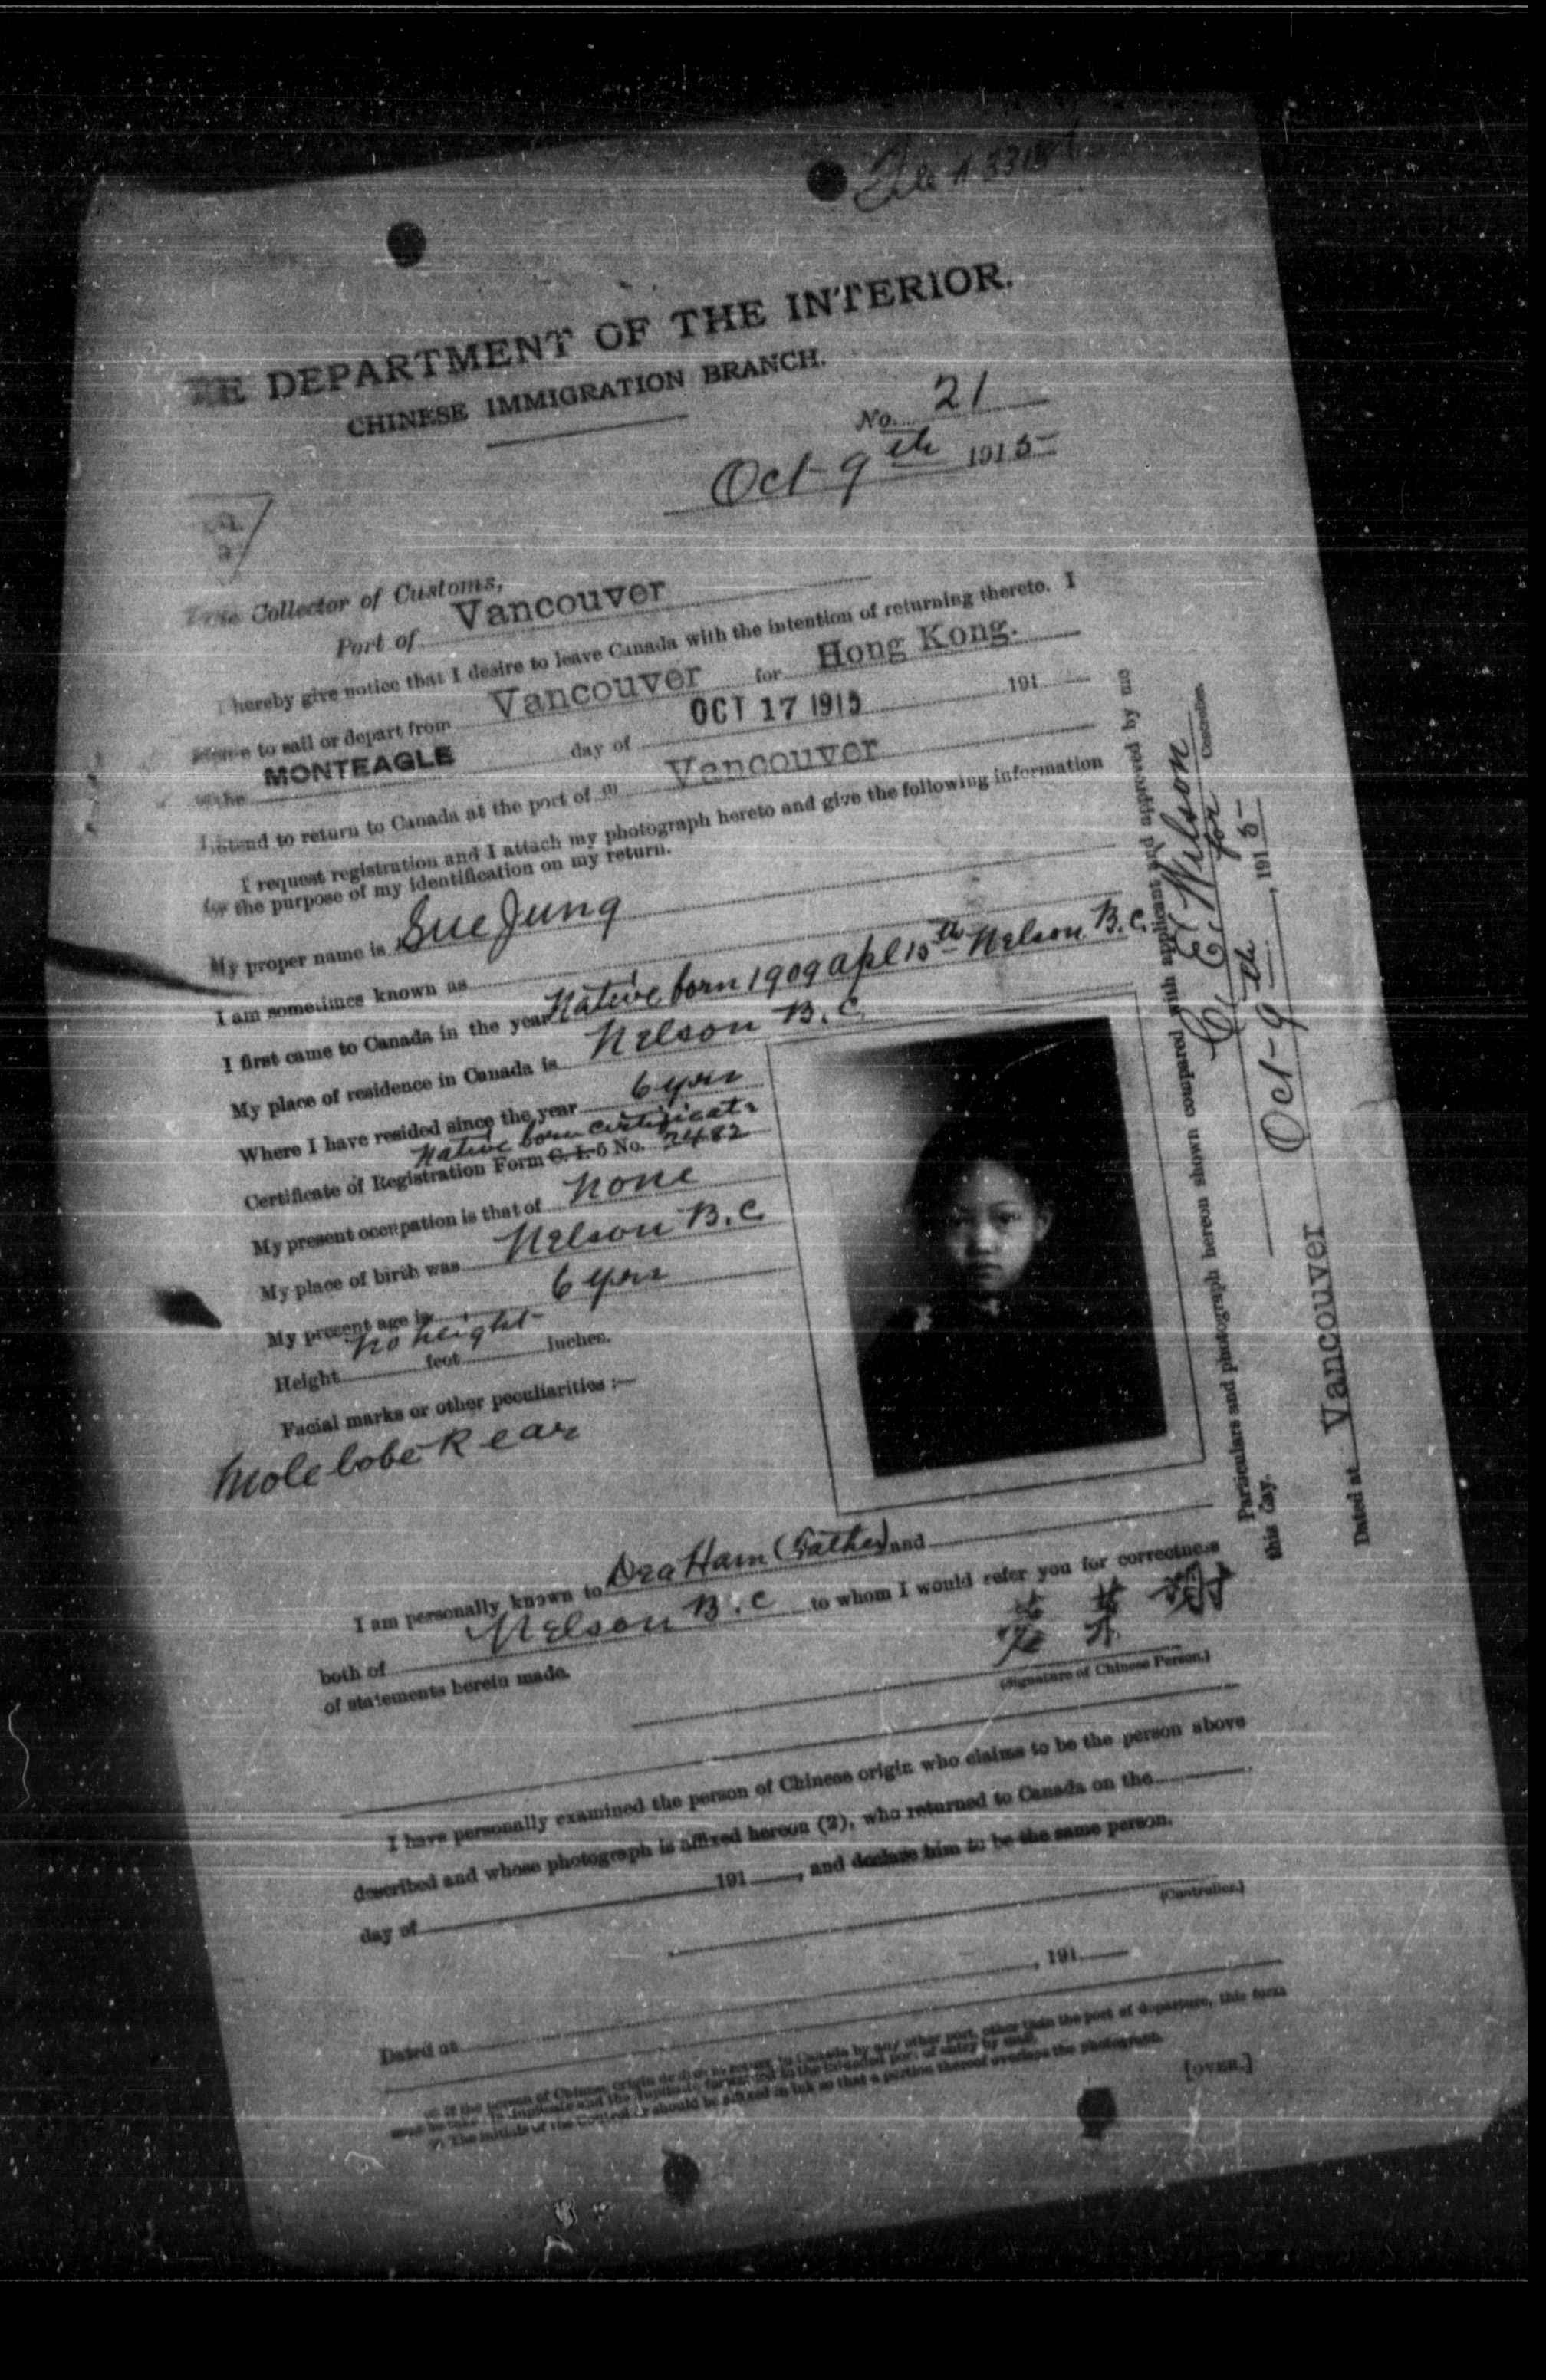 DEPARTMENT OF THE INTERIOR.
CHINESE IMMIGRATION BRANCH.
No. 21
Oct 9th 1915
Collector of Customs,
Port of Vancouver
I hereby give notice that I desire to leave Canada with the intention of returning thereto. I
to sail or depart from Vancouver for Hong Kong.
MONTEAGLE day of OCT 17 1915 191
I intend to return to Canada at the port of (1) Vancouver
I request registration and I attach my photograph hereto and give the following information
for the purpose of my identification on my return.
My proper name is Sue Jung
I am sometimes known as
I first came to Canada in the year Native born 1909 Apl 15th Nelson B.C.
My place of residence in Canada is Nelson B.C.
Where I have resided since the year 6 yrs
Native born certificate
Certificate of Registration Form C. I. 5 No. 2482
My present occupation is that of none
My place of birth was Nelson B.C.
My present age is 6 yrs
no height
Height feet inches.
Facial marks or other peculiarities :—
Mole lobe R ear
I am personally known to Dra Ham (Father) and
both of Nelson B.C to whom I would refer you for correctness
of statements herein made.
(Signature of Chinese Person.)
I have personally examined the person of Chinese origin who claims to be the person above
described and whose photograph is affixed hereon (2), who returned to Canada on the
day of 191 , and declare him to be the same person.
(Controller.)
Dated at , 191
(1) If the person of Chinese origin desires to return to Canada by any other port, other than the port of departure, this form
must be in duplicate and the duplicate forwarded to the intended port of entry by mail.
(2) The initials of the Controller should be affixed in ink so that a portion thereof overlaps the photograph.
[OVER.]
Particulars and photograph hereon shown compared with applicant and approved by me
this day.
C. E. Wilson
for
Controller.
Oct 9th , 1915
Dated at Vancouver